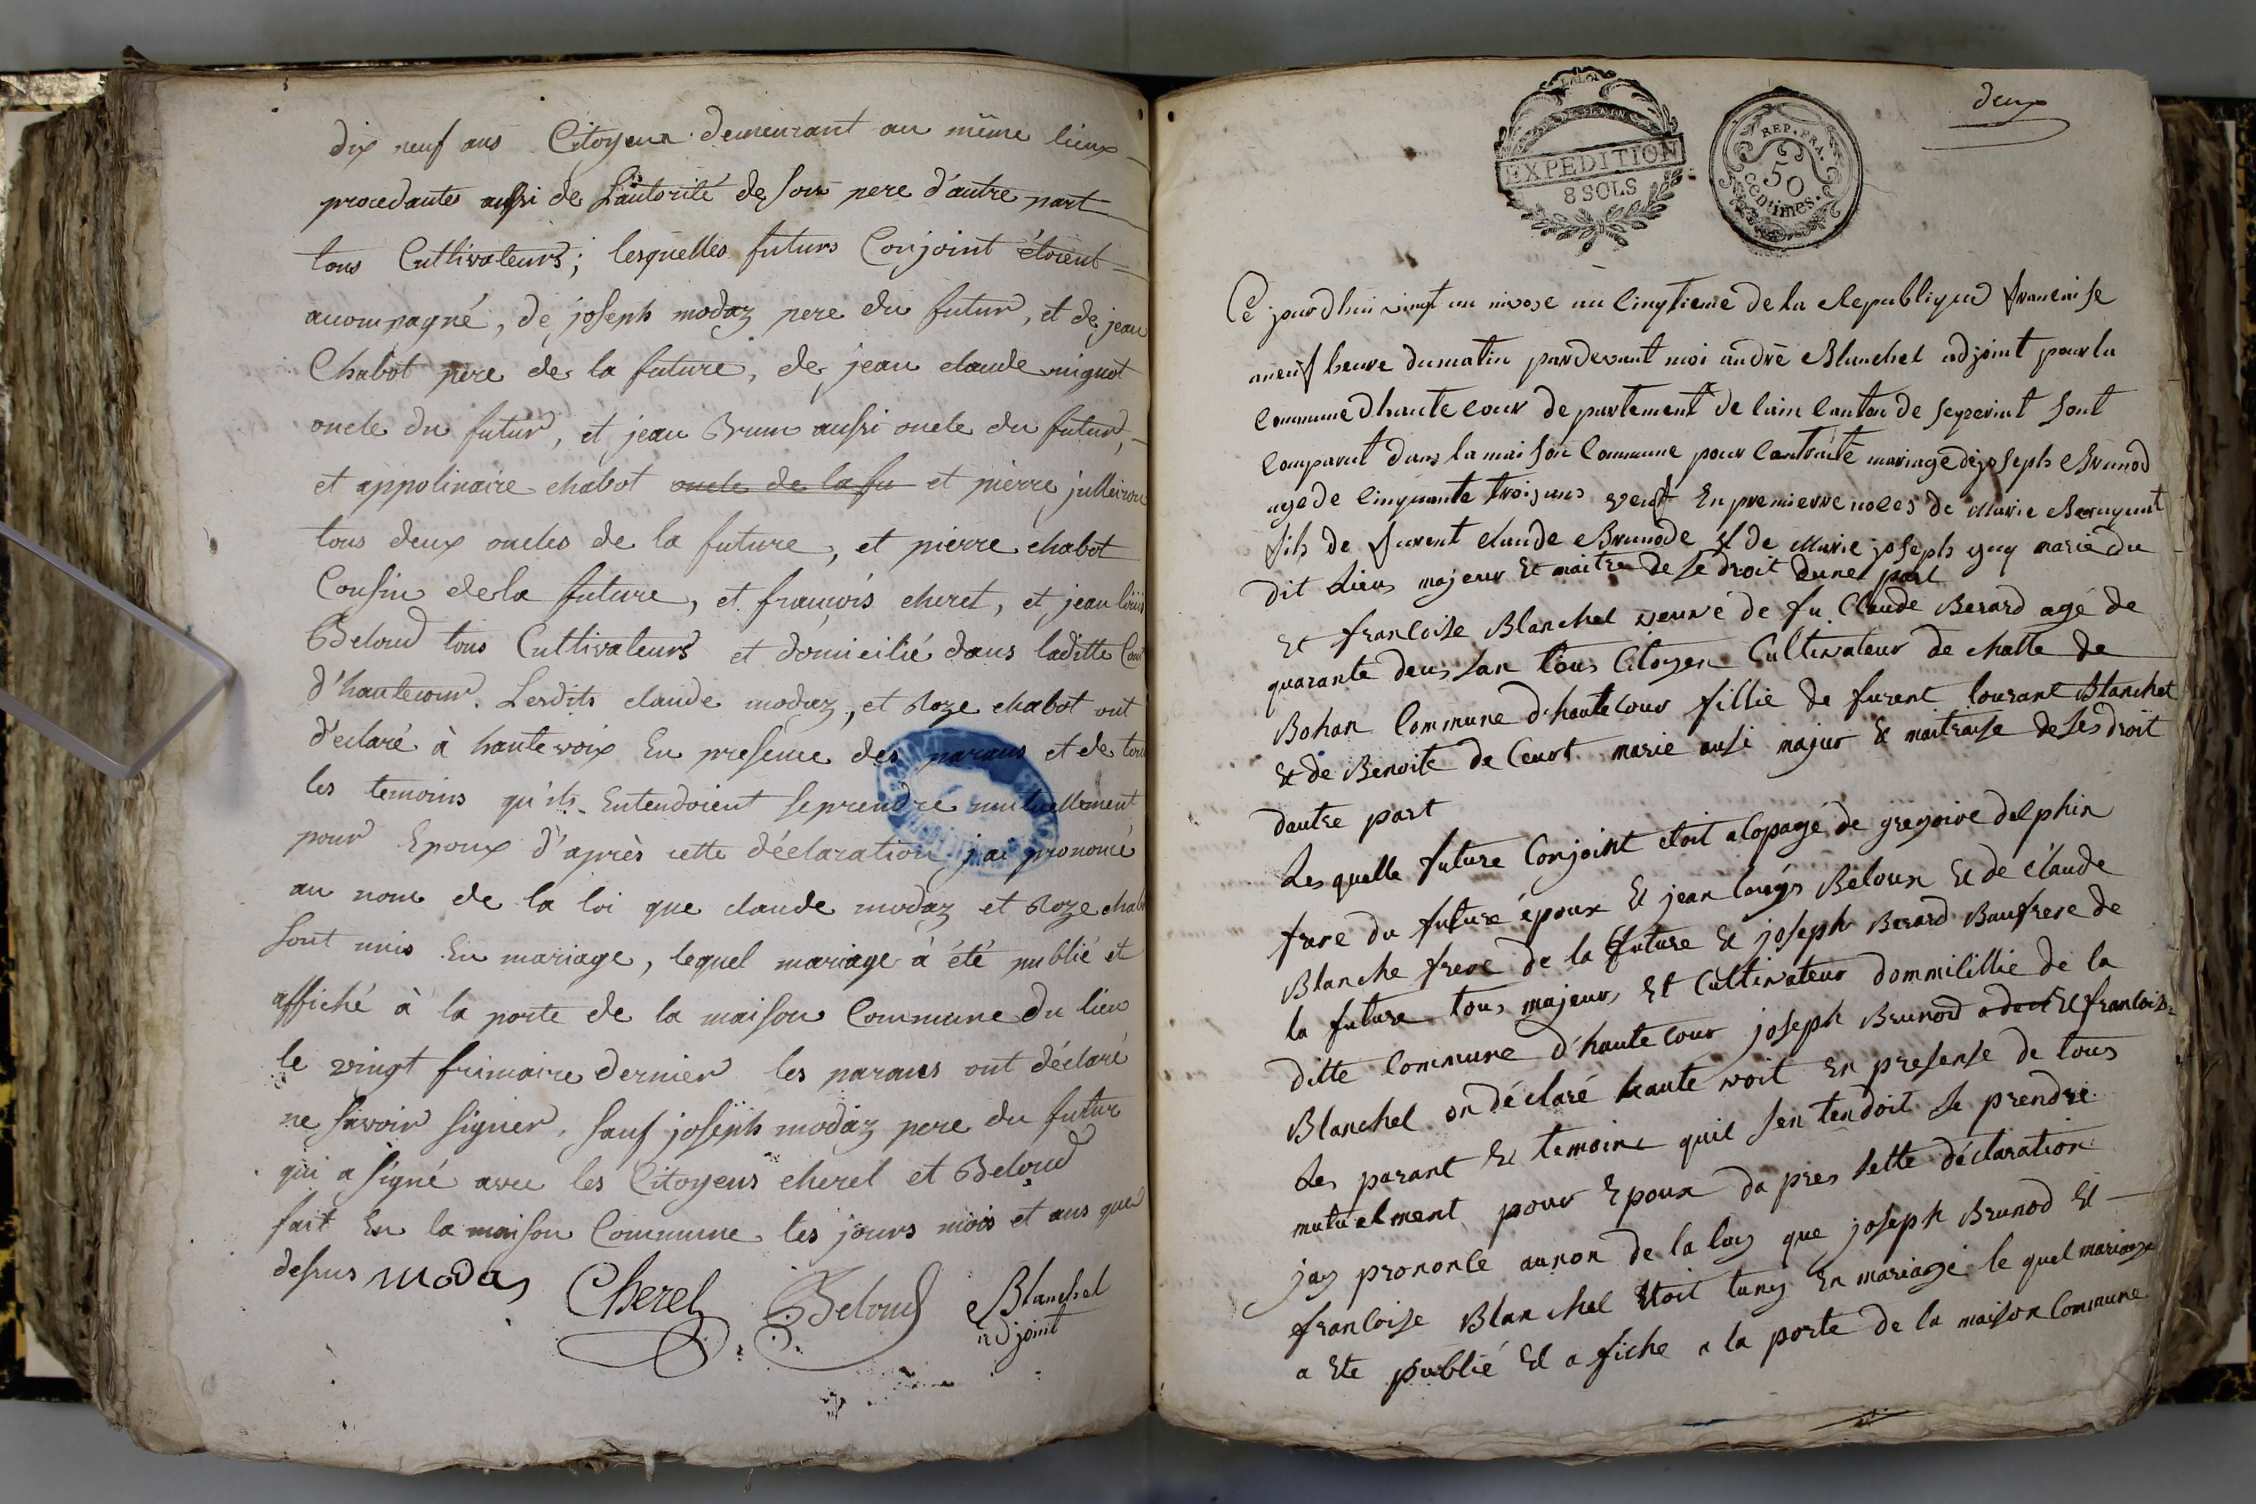 dix neuf ans Citoyenx demeurant au même lieux
procedante aussi de L'autorité de son pere d'autre part
tous Cultivateurs; lesquelles futurs Conjoint étoient
acompagné, de joseph modaz pere du futur, et de jean
Chabot pere de la future, de jean claude mignot
oncle du futur, et jean Brun aussi oncle du futur,
et appolinaire chabot oncle de la fu et pierre jullieron
tous deux oncles de la future, et pierre chabot
Cousin de la future, et françois cheret, et jean louis
Beloud tous Cultivateurs et domicilié dans laditte Com
d'hautecour. Lesdits claude modaz, et Roze chabot ont
déclaré à haute voix En presence des parans et de tous
les temoins qu'ils Entendoient se prendre mutuellement
pour Epoux d'après cette déclaration j'ai prononcé
au nom de la loi que claude modaz et Roze chabo
sont unis En mariage, lequel mariage à été publié et
affiché à la porte de la maison Commune du lieu
le vingt frimaire dernier les parans ont déclaré
ne savoir signer, sauf joseph modaz pere du futur
qui a signé avec les Citoyens cherel et Beloud
fait En la maison Commune les jours mois et ans que
desus modas Cherel Beloud Blanchel
adjoint
deux
LA LOI
EXPEDITION
8 SOLS
REP. FRA.
50
centimes.
Ce jourdhui vingt un nivose an Cinqtieme de la Republique francaise
a neuf heure du matin pardevant moi andré Blanchel adjoint pour la
commune dhautecour departement de lain Canton de seyzeriat sont
comparut dans la maison Commune pour Contraité mariage de joseph Brunod
age de Cinquante trois ans veuf En premierre noces de Marie
fils de furent claude Brunode et de Marie joseph guy marie du
dit Lieu majeur Et maitre de se droit dune part
Et francoise Blanchel veuve de fu Claude Berard agé de
quarante deus san tous Citoyen Cultivateur de chatte de
Bohan Commune d'hautecour fillie de furent lourant Blanchet
Et de Benoite de Ceurt marie ausi majeur Et maitraise de ses droit
dautre part
Les quelle future Conjoint etoit acopagé de gregoire delphin
frare du future époux Et jean louys Beloux Et de Claude
Blanche frere de la future Et joseph Berard Baufrere de
la future tous majeurs Et Cultivateur dommilillie de la
ditte Commune d'hautecour joseph Brunod Et francoise
Blanchel on déclaré haute voit En presense de tous
Les parant Et temoins quil sen tendoit se prendre
mutuelment pour Epoux da pres sette déclaration
jay prononce aunon de la loy que joseph Brunod Et
francoise Blanchel Etoit tuny En mariage le quel mariage
a Ete publié Et a fiche a la porte de la maison Commune